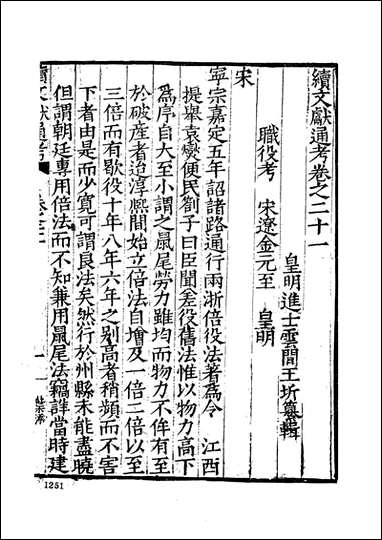 續文獻通考卷之二十一
皇明進士雲間王圻纂輯
職役考　宋遼金元至　皇明
宋
寧宗嘉定五年詔諸路通行兩浙倍役法著爲令　江西
提舉袁燮便民劄子曰臣聞差役舊法惟以物力高下
爲序自大至小謂之鼠尾勞力雖均而物力不侔有至
於破產者迨淳熙間始立倍法自增及一倍二倍以至
三倍而有歇役十年八年六年之别高者稍頻而不害
下者由是而少寬可謂良法矣然行於州縣未能盡曉
但謂朝廷專用倍法而不知兼用鼠尾法竊詳當時建
續文獻通考
卷之二十一
一
1251